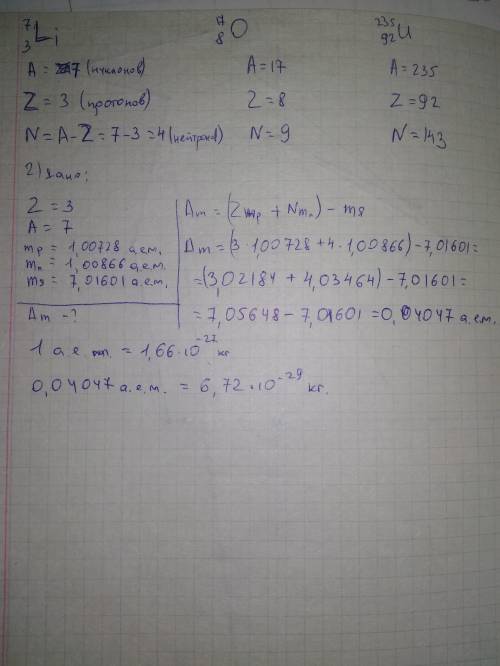 ⁷₃Li ¹⁷₈O ²³⁵₉₂U
A = 7 (нуклонов) A = 17 A = 235
Z = 3 (протонов) Z = 8 Z = 92
N = A - Z = 7 - 3 = 4 (нейтронов) N = 9 N = 143
2) Дано:
Z = 3
A = 7
mp = 1,00728 а.е.м.
mn = 1,00866 а.е.м.
mя = 7,01601 а.е.м.
Δm - ?
Δm = (Zmp + Nmn) - mя
Δm = (3·1,00728 + 4·1,00866) - 7,01601 =
= (3,02184 + 4,03464) - 7,01601 =
= 7,05648 - 7,01601 = 0,04047 а.е.м.
1 а.е.м. = 1,66·10⁻²⁷ кг
0,04047 а.е.м. = 6,72·10⁻²⁹ кг.